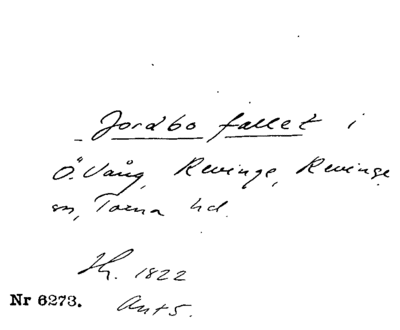 Jordbo fallet i
Ö. Vång, Revinge, Revinge
sn, Torna hd.
Hr. 1822
Nr 6273. Ant 5.